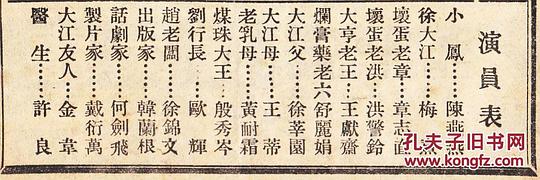 演員表
小鳳……陳燕
徐大江……梅
壞蛋老章……章志直
壞蛋老洪……洪警鈴
大亨老王……王獻齋
爛膏藥老六……舒麗娟
大江父……徐莘園
大江母……王蒂
老乳母……黃耐霜
煤珠大王……殷秀岑
劉行長……歐輝
趙老闆……徐錦文
出版家……韓蘭根
話劇家……何劍飛
製片家……戴衍萬
大江友人……金韋
醫生……許良
孔夫子旧书网
www.kongfz.com